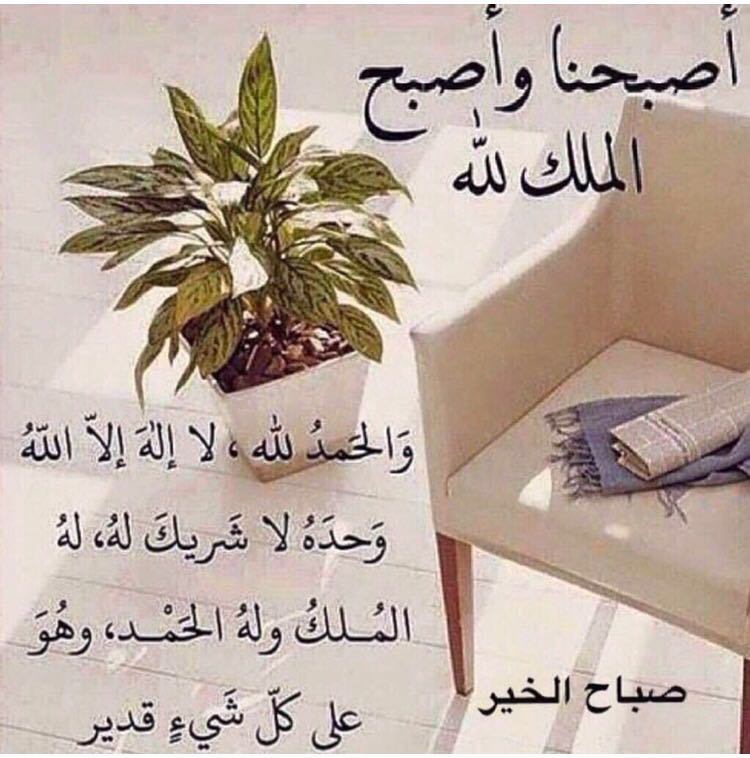 أصبحنا وأصبح
الملك لله
وَالحَمدُ لله ، لا إلهَ إلاّ اللّهُ
وَحدَهُ لا شَريكَ لهُ، لهُ
المُـلكُ ولهُ الحَمْـد، وهُوَ
على كلّ شَيءٍ قدير
صباح الخير